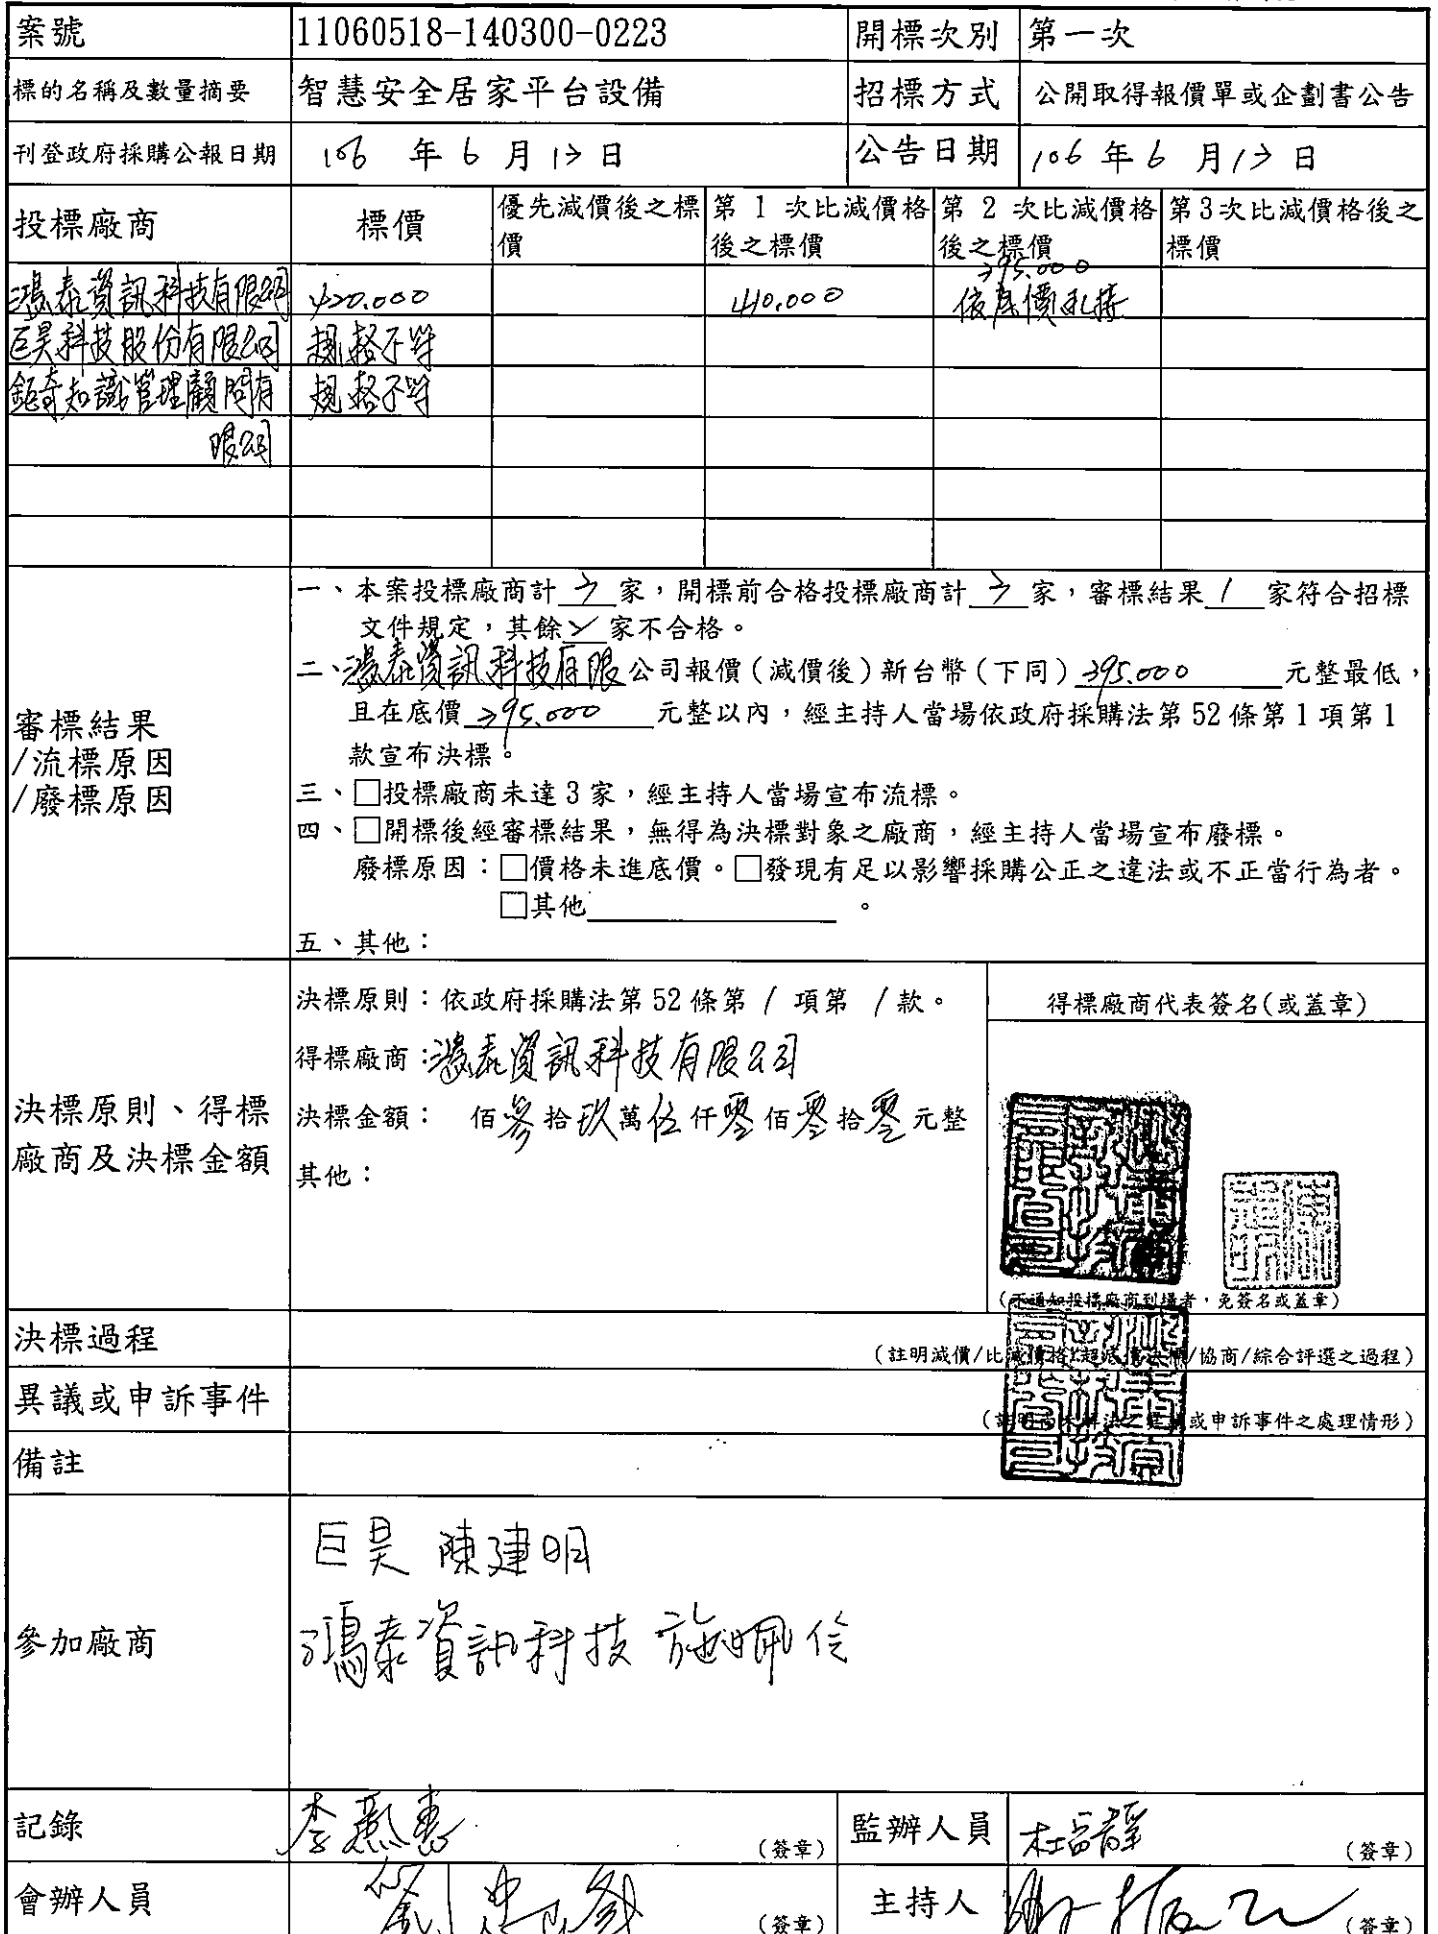 案號 11060518-140300-0223 開標次別 第一次
標的名稱及數量摘要 智慧安全居家平台設備 招標方式 公開取得報價單或企劃書公告
刊登政府採購公報日期 106 年 6 月 13 日 公告日期 106 年 6 月 13 日
投標廠商 標價 優先減價後之標價 第 1 次比減價格後之標價 第 2 次比減價格後之標價 第3次比減價格後之標價
395.000
鴻泰資訊科技有限公司 420.000 410,000 依底價承接
巨昊科技股份有限公司 規格不符
鉅奇知識管理顧問有 規格不符
限公司
審標結果
/流標原因
/廢標原因
一、本案投標廠商計 3 家,開標前合格投標廠商計 3 家,審標結果 1 家符合招標
文件規定,其餘 2 家不合格。
二、鴻泰資訊科技有限公司報價(減價後)新台幣(下同) 395.000 元整最低,
且在底價 395.000 元整以內,經主持人當場依政府採購法第 52 條第 1 項第 1
款宣布決標。
三、□投標廠商未達 3 家,經主持人當場宣布流標。
四、□開標後經審標結果,無得為決標對象之廠商,經主持人當場宣布廢標。
廢標原因:□價格未進底價。□發現有足以影響採購公正之違法或不正當行為者。
□其他 。
五、其他:
決標原則、得標
廠商及決標金額
決標原則:依政府採購法第 52 條第 1 項第 1 款。
得標廠商:鴻泰資訊科技有限公司
決標金額: 佰參拾玖萬伍仟零佰零拾零元整
其他:
得標廠商代表簽名(或蓋章)
(不通知投標廠商到場者,免簽名或蓋章)
決標過程 (註明減價/比減價格/超底價決標/協商/綜合評選之過程)
異議或申訴事件 (註明尚未解決之異議或申訴事件之處理情形)
備註
參加廠商
巨昊 陳建明
鴻泰資訊科技 施佩伶
記錄 (簽章) 監辦人員 (簽章)
會辦人員 (簽章) 主持人 (簽章)